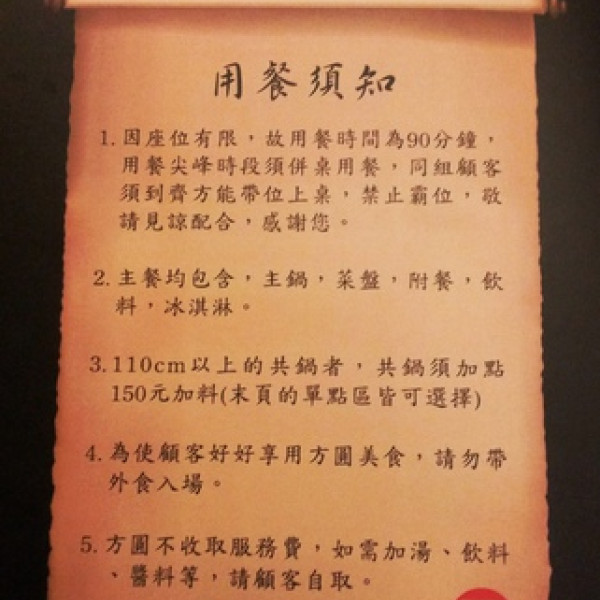 用餐須知
1. 因座位有限，故用餐時間為90分鐘，
用餐尖峰時段須併桌用餐，同組顧客
須到齊方能帶位上桌，禁止霸位，敬
請見諒配合，感謝您。
2. 主餐均包含，主鍋，菜盤，附餐，飲
料，冰淇淋。
3. 110cm以上的共鍋者，共鍋須加點
150元加料(末頁的單點區皆可選擇)
4. 為使顧客好好享用方圓美食，請勿帶
外食入場。
5. 方圓不收取服務費，如需加湯、飲料
、醬料等，請顧客自取。